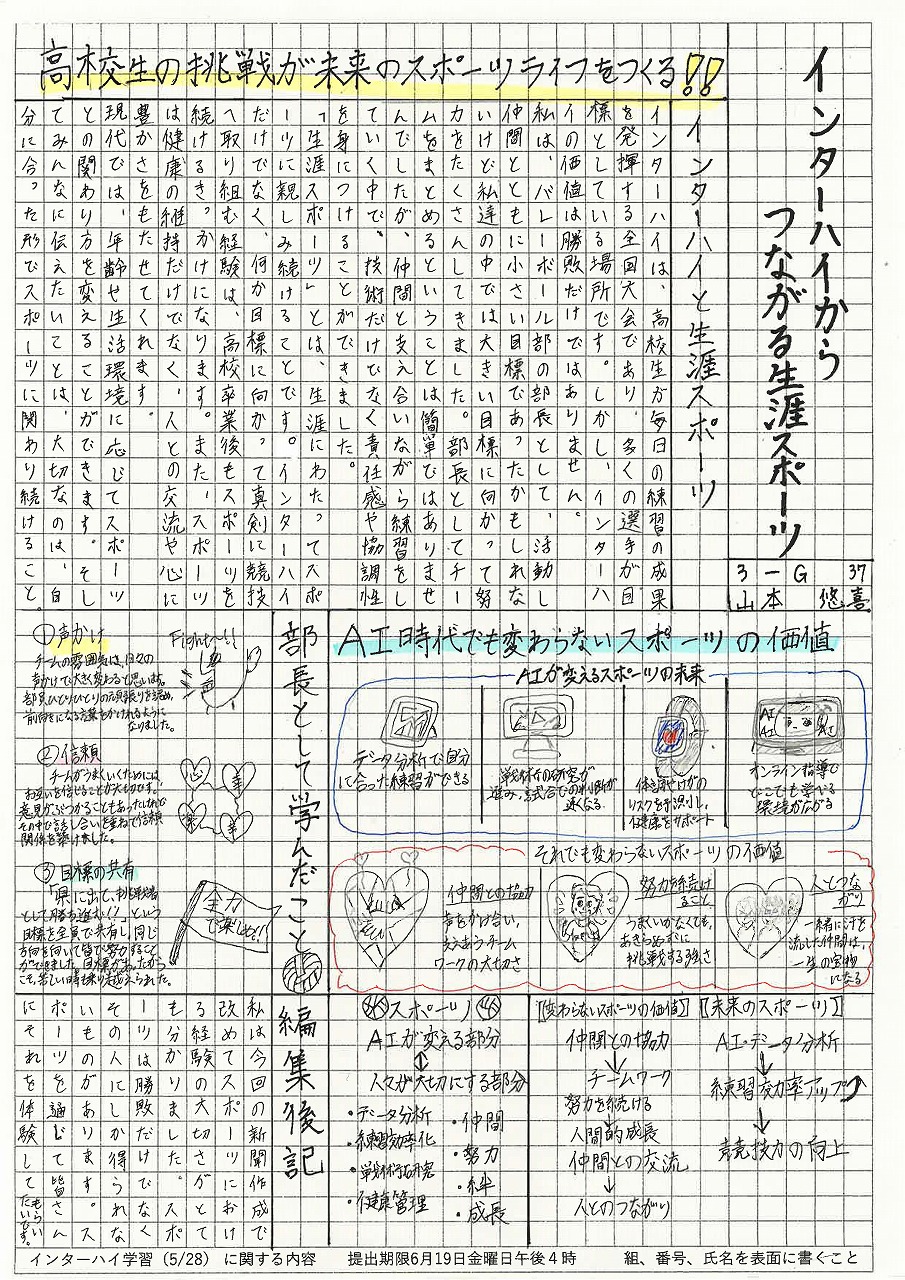 高校生の挑戦が未来のスポーツライフをつくる!!
インターハイから
つながる生涯スポーツ
3-G 37
山本 悠喜
インターハイと生涯スポーツ
インターハイは、高校生が毎日の練習の成果
を発揮する全国大会であり、多くの選手が目
標としている場所です。しかし、インターハ
イの価値は勝敗だけではありません。
私はバレーボール部の部長として、活動し
仲間とともに小さい目標であったかもしれな
いけど私達の中では大きい目標に向かって努
力をたくさんしてきました。部長としてチー
ムをまとめるということは簡単ではありませ
んでしたが、仲間と支え合いながら練習をし
ていく中で、技術だけでなく責任感や協調性
を身につけることができました。
「生涯スポーツ」とは、生涯にわたってスポ
ーツに親しみ続けることです。インターハイ
だけでなく、何か目標に向かって真剣に競技
へ取り組む経験は、高校卒業後もスポーツを
続けるきっかけになります。また、スポーツ
は健康の維持だけでなく、人との交流や心に
豊かさをもたせてくれます。
現代では、年齢や生活環境に応じてスポーツ
との関わり方を変えることができます。そし
てみんなに伝えたいことは、大切なのは、自
分に合った形でスポーツに関わり続けること。
AI時代でも変わらないスポーツの価値
AIが変えるスポーツの未来
データ分析で自分
に合った練習ができる
戦術の研究が
進み、試合での判断が
速くなる
体調やけがの
リスクを予測し、
健康をサポート
AI
AI
AI
オンライン指導で
どこでも学べる
環境が広がる
それでも変わらないスポーツの価値
仲間との協力
声をかけ合い、
支えあうチーム
ワークの大切さ
努力を続け
ること
うまくいかなくても、
あきらめずに
挑戦する強さ
人とつな
がり
一緒に汗を
流した仲間は、
一生の宝物
になる
部長として学んだこと
①声かけ
チームの雰囲気は、日々の
声かけで大きく変わると思います。
部員ひとりひとりの頑張りを認め、
前向きになる言葉をかけれるように
なりました。
Fight~!!
②信頼
チームがうまくいくためには、
お互いを信じることが大切です。
意見がぶつかることもあったけれど
その中で話し合いを重ねて信頼
関係を築けました。
③目標の共有
「県に出て、挑戦者
として勝ち進む!!」という
目標を全員で共有し、同じ
方向を向いて皆で努力すること
ができました。目標があったから
こそ、苦しい時も乗り越えられた。
全力
で楽しむ!!
スポーツ
AIが変える部分
↕
人々が大切にする部分
・データ分析
・練習効率化
・戦術研究
・健康管理
・仲間
・努力
・絆
・成長
【変わらないスポーツの価値】
仲間との協力
↓
チームワーク
努力を続ける
↓
人間的成長
仲間との交流
↓
人とのつながり
【未来のスポーツ】
AI・データ分析
↓
練習効率アップ
↓
競技力の向上
編集後記
私は今回の新聞作成で
改めてスポーツにおけ
る経験の大切さがとて
も分かりました。スポ
ーツは勝敗だけでなく
その人にしか得られな
いものがあります。ス
ポーツを通じて皆さん
にそれを体験してもらいたいです。
インターハイ学習（5/28）に関する内容 提出期限6月19日金曜日午後4時 組、番号、氏名を表面に書くこと